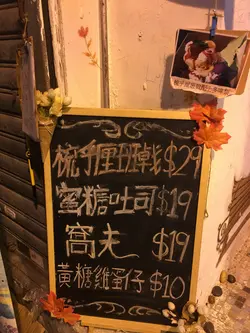 梳乎厘班戟$29
蜜糖吐司$19
窩夫 $19
黃糖雞蛋仔$10